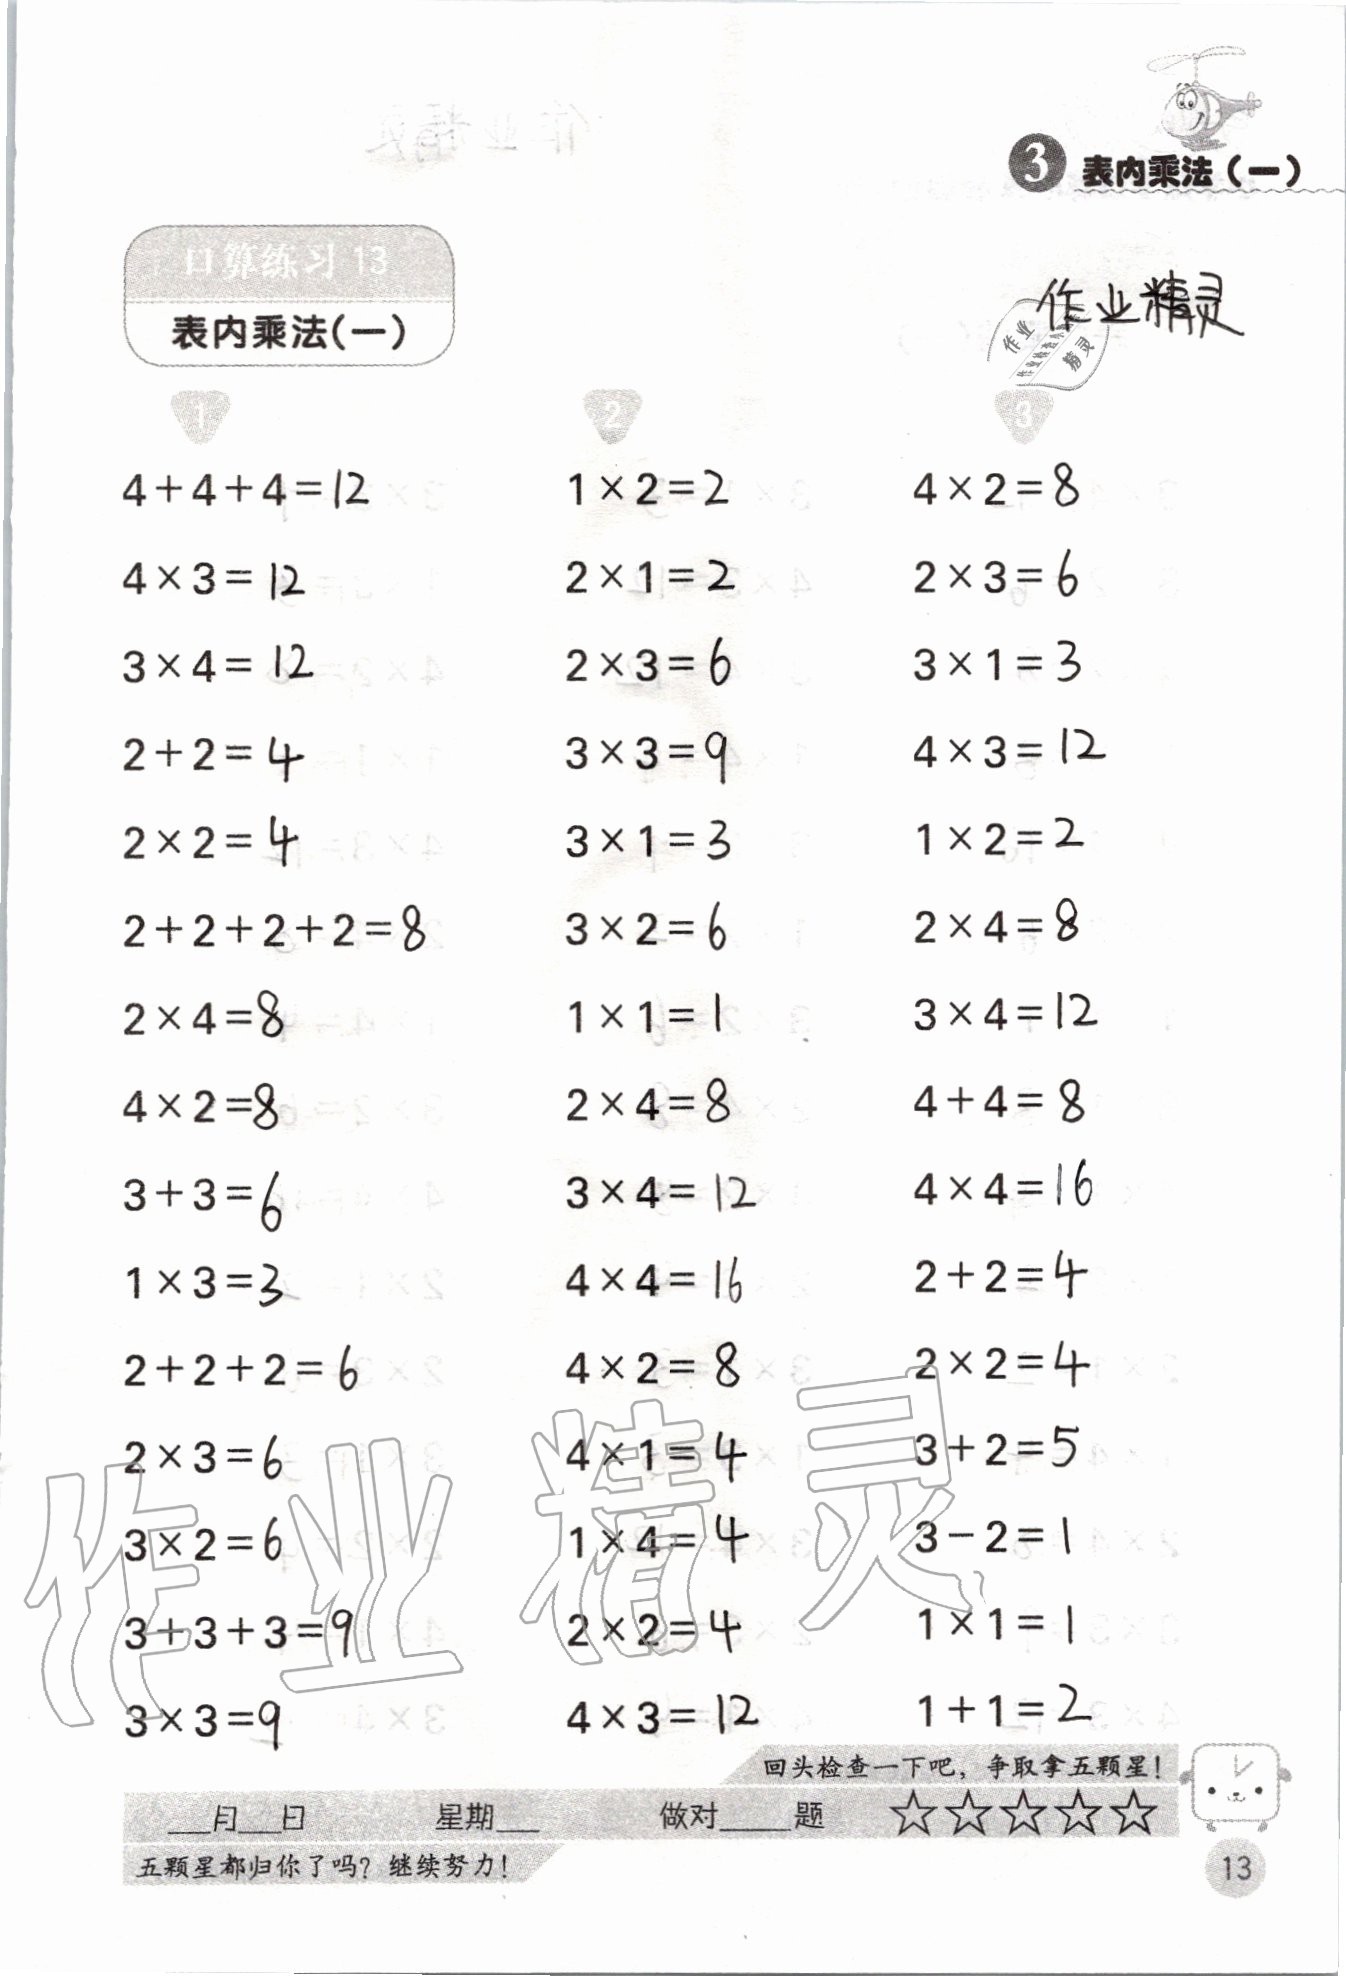 3 表内乘法（一）
口算练习 13
表内乘法（一）
作业精灵
作业
作业检查小
精灵
1
2
3
4+4+4=12
1×2=2
4×2=8
4×3=12
2×1=2
2×3=6
3×4=12
2×3=6
3×1=3
2+2=4
3×3=9
4×3=12
2×2=4
3×1=3
1×2=2
2+2+2+2=8
3×2=6
2×4=8
2×4=8
1×1=1
3×4=12
4×2=8
2×4=8
4+4=8
3+3=6
3×4=12
4×4=16
1×3=3
4×4=16
2+2=4
2+2+2=6
4×2=8
2×2=4
2×3=6
4×1=4
3+2=5
3×2=6
1×4=4
3-2=1
3+3+3=9
2×2=4
1×1=1
3×3=9
4×3=12
1+1=2
作业精灵
回头检查一下吧，争取拿五颗星！
___月___日 星期___ 做对_____题 ☆☆☆☆☆
五颗星都归你了吗？继续努力！
13